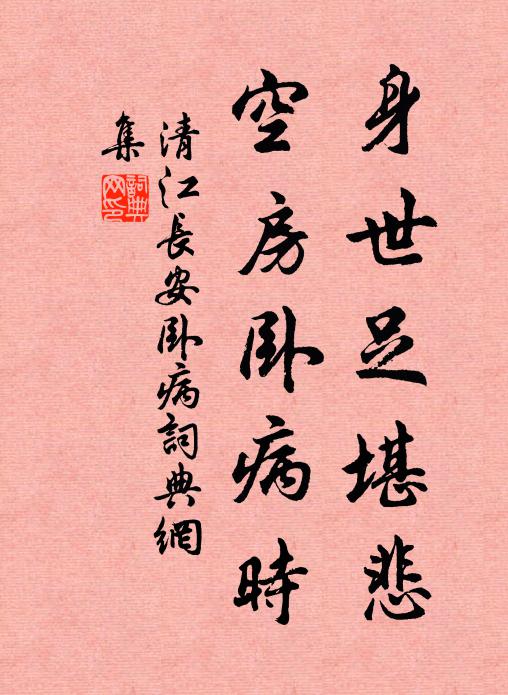 身世足堪悲
空房卧病時
清江長安卧病詞典網
集
詞典
网印